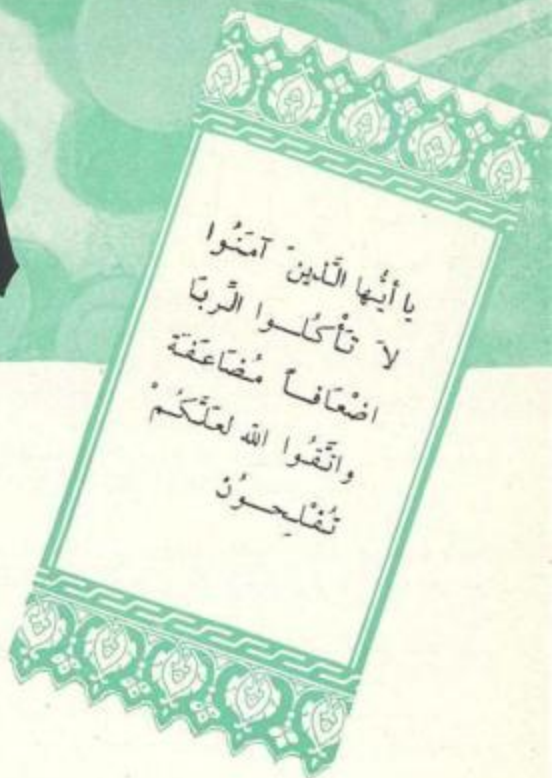 يا أيُّها الَّذينَ آمَنُوا
لاَ تَأْكُلــوا الَّربَا
اضْعَافــاً مُضَاعَفَة
واتَّقُوا الله لعَلَّكُمْ
تُفْلِحــوُنْ